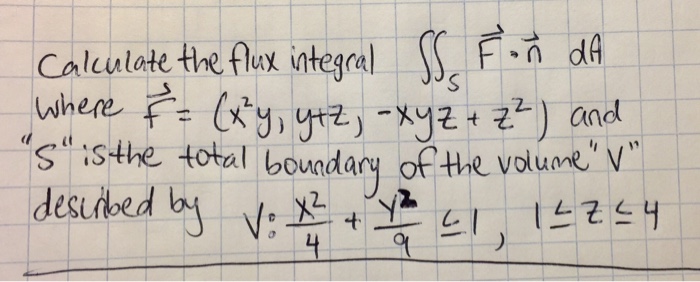 Calculate the flux integral ∬_S F⃗ · n⃗ dA
where F⃗ = (x²y, y+z, -xyz + z²) and
"S" is the total boundary of the volume "V"
described by V: x²/4 + y²/9 ≤ 1, 1 ≤ z ≤ 4